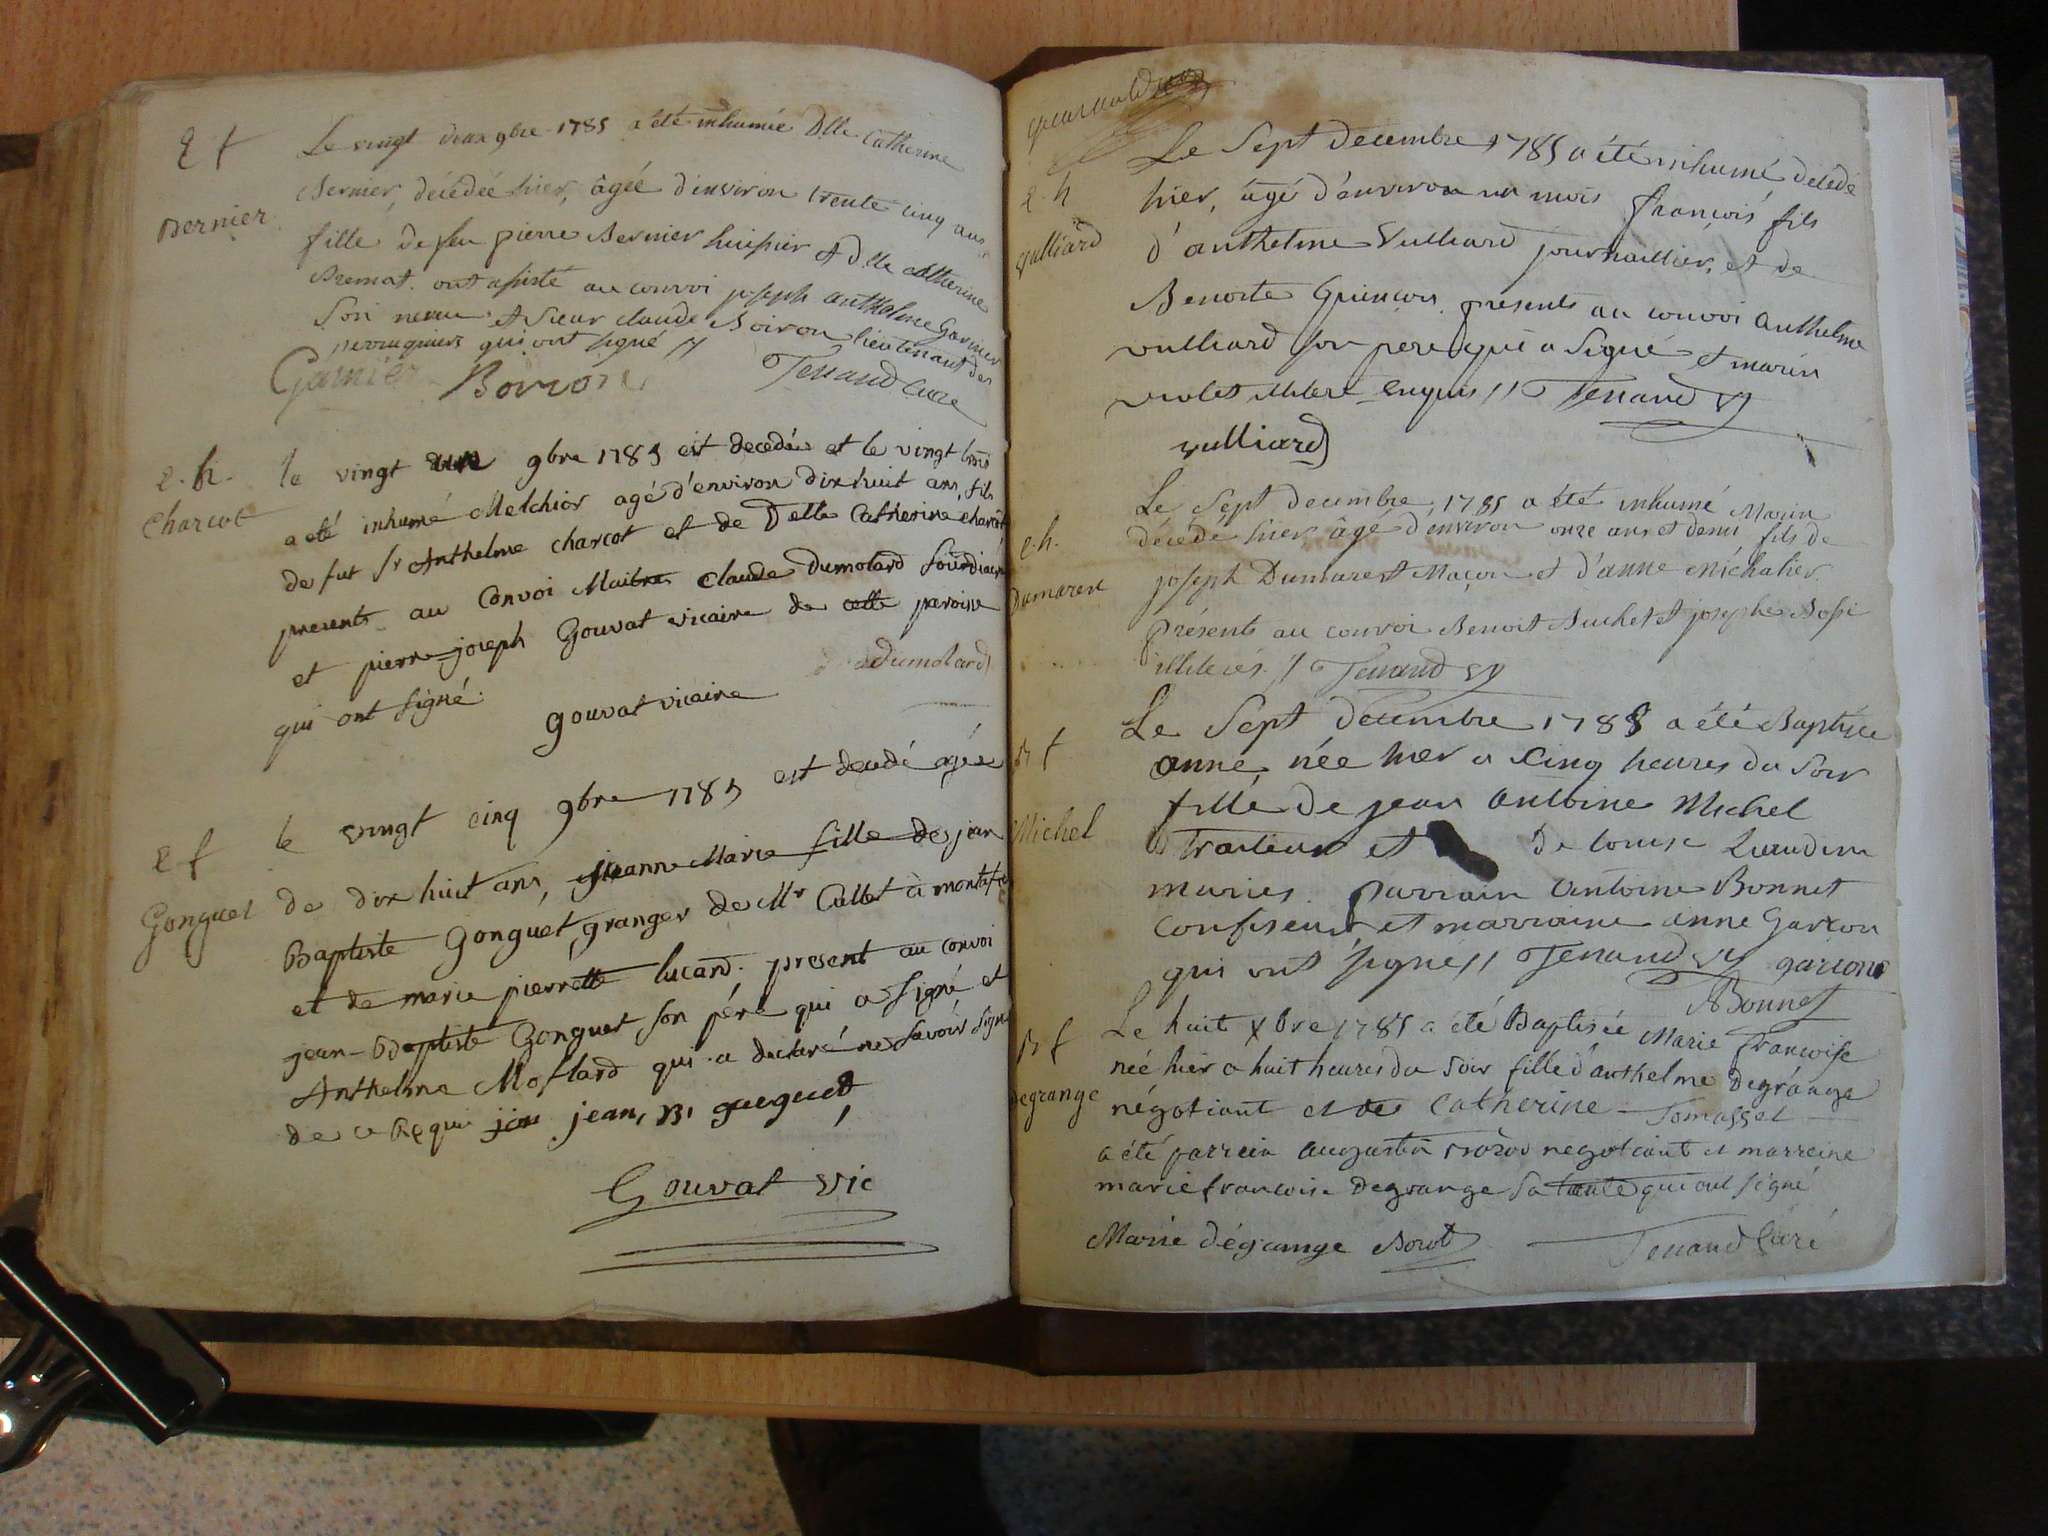 E f
Bernier
Le vingt deux 9bre 1785 a été inhumée Dlle Catherine
Bernier, décédée hier, âgée d'environ trente cinq ans
fille de feu pierre Bernier huissier et Dlle Catherine
ont assisté au convoi joseph anthelme Garnier
son neveu et Sieur claude Boiron lieutenant des
perruquiers qui ont signé //
Garnier Boiron Tenand Curé
e. h.
Charcot
le vingt 9bre 1785 est decedé et le vingt trois
a eté inhumé Melchior agé d'environ dix huit ans, fils
de fut Sr Anthelme charcot et de Delle Catherine charcot
presents au Convoi Maitre Claude Dumolard
et pierre joseph Gouvat vicaire de cette paroisse
qui ont signé.
Dumolard
gouvat vicaire
e f
Gonguet
le vingt cinq 9bre 1785 est decedé agée
de dix huit ans, jeanne Marie fille de jean
Baptiste Gonguet, granger de Mr Callet à
et de marie pierrette lucand. present au convoi
jean-Baptiste Gonguet son pére qui a signé et
Anthelme Moflard qui a declaré ne savoir signer
de ce Requi jean, B,
Gouvat vic
e. h
vulliard
Le Sept decembre 1785 a été inhumé décédé
hier, âgé d'environ un mois françois, fils
d'anthelme Vulliard journaillier, et de
Benoite presents au convoi anthelme
vulliard son pere qui a signé et marin
violet illiteré enquis // Tenand
vulliard
e. h.
Dumarest
Le Sept decembre 1785 a été inhumé Marin
décédé hier, âgé d'environ onze ans et demi fils de
joseph Dumarest Maçon et d'anne Michalier.
Présents au convoi Benoit Suchet et joseph Bossi
illiterés. // Tenand
B f
Michel
Le Sept decembre 1785 a été Baptisée
anne, née hier a Cinq heures du Soir
fille de jean antoine Michel
Traiteur et de louise
mariés. Parrain Antoine Bonnet
confiseur et marraine anne Garcon
qui ont signé // Tenand garcon
Bonnet
B f
degrange
Le huit xbre 1785 a été Baptisée Marie francoise
née hier a huit heures du Soir fille d'anthelme degrange
négotiant et de Catherine Tomasset
a été parrein augustin negotiant et marreine
marie francoise degrange sa tante qui ont signé
Marie dégrange Tenand Curé